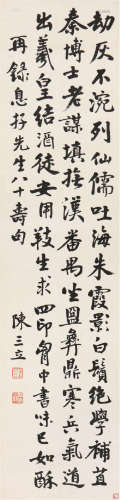 劫灰不涴列仙儒吐海朱霞影白鬚絶學補苴
秦博士老謀填撫漢番禺坐圍彝鼎寒兵氣道
出羲皇結酒徒安用生求四印胷中書味已如酥
再錄息存先生八十壽句
陳三立